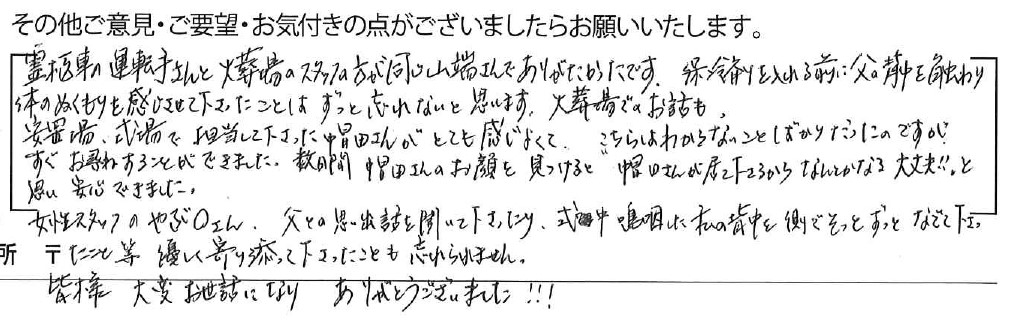 その他ご意見・ご要望・お気付きの点がございましたらお願いいたします。
霊柩車の運転手さんと火葬場のスタッフの方が同じ山端さんでありがたかったです。保冷剤を入れる前に父の背中を触わり
体のぬくもりを感じさせて下さったことは ずっと忘れないと思います。火葬場でのお話も。
安置場、式場で担当して下さった帽田さんが とても感じよくて、こちらはわからないことばかりだったのですが
すぐお尋ねすることができました。数日間 帽田さんのお顔を見つけると "帽田さんが居て下さるからなんとかなる 大丈夫!!"と
思い 安心できました。
女性スタッフのやぶ○さん、父との思い出話を聞いて下さったり、式中 嗚咽した私の背中を側でそっとずっと なでて下さっ
所 〒 たこと等 優しく寄り添って下さったことも忘れられません。
皆様 大変お世話になり ありがとうございました!!!